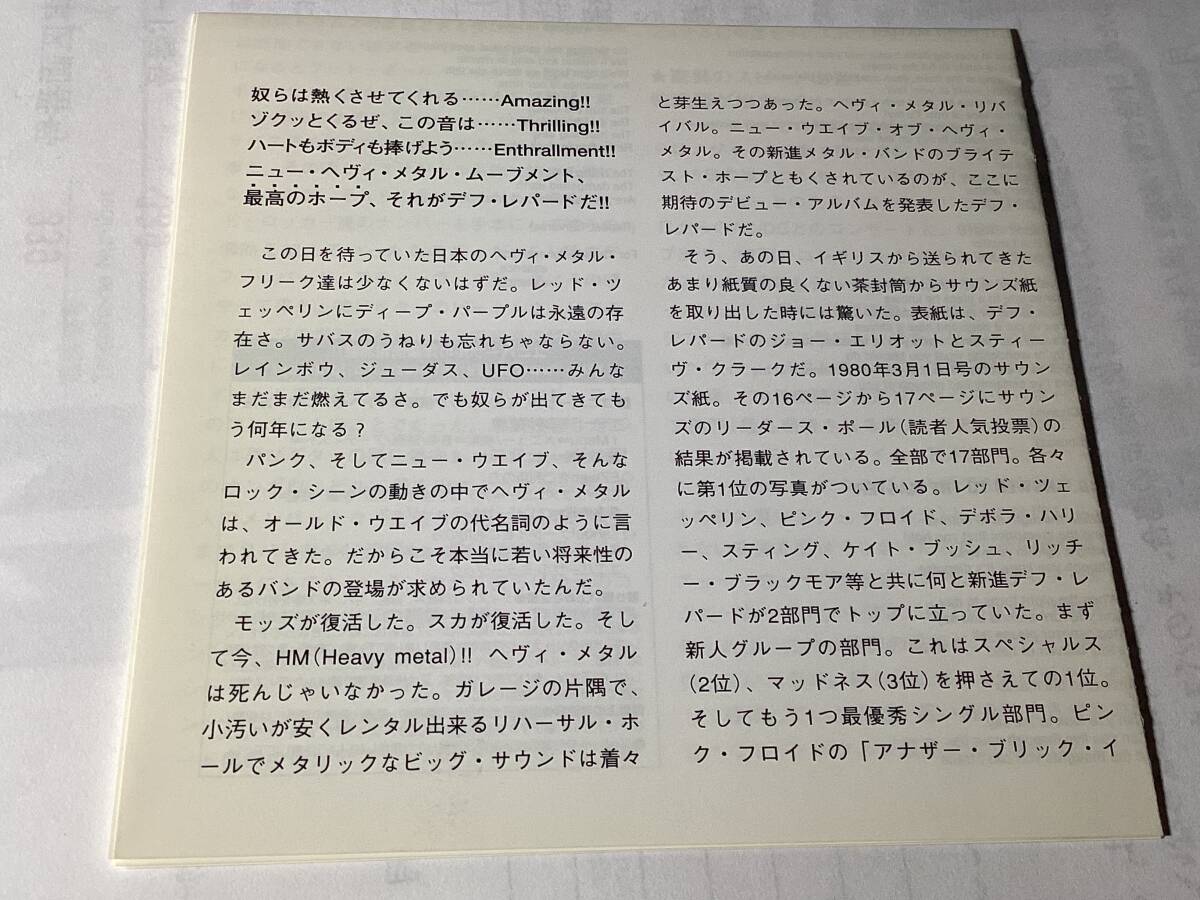 奴らは熱くさせてくれる……Amazing!!
ゾクッとくるぜ、この音は……Thrilling!!
ハートもボディも捧げよう……Enthrallment!!
ニュー・ヘヴィ・メタル・ムーブメント、
最高のホープ、それがデフ・レパードだ!!
この日を待っていた日本のヘヴィ・メタル・
フリーク達は少なくないはずだ。レッド・ツ
ェッペリンにディープ・パープルは永遠の存
在さ。サバスのうねりも忘れちゃならない。
レインボウ、ジューダス、UFO……みんな
まだまだ燃えてるさ。でも奴らが出てきても
う何年になる？
パンク、そしてニュー・ウエイブ、そんな
ロック・シーンの動きの中でヘヴィ・メタル
は、オールド・ウエイブの代名詞のように言
われてきた。だからこそ本当に若い将来性の
あるバンドの登場が求められていたんだ。
モッズが復活した。スカが復活した。そし
て今、HM(Heavy metal)!! ヘヴィ・メタル
は死んじゃいなかった。ガレージの片隅で、
小汚いが安くレンタル出来るリハーサル・ホ
ールでメタリックなビッグ・サウンドは着々
と芽生えつつあった。ヘヴィ・メタル・リバ
イバル。ニュー・ウエイブ・オブ・ヘヴィ・
メタル。その新進メタル・バンドのブライテ
スト・ホープともくされているのが、ここに
期待のデビュー・アルバムを発表したデフ・
レパードだ。
そう、あの日、イギリスから送られてきた
あまり紙質の良くない茶封筒からサウンズ紙
を取り出した時には驚いた。表紙は、デフ・
レパードのジョー・エリオットとスティー
ヴ・クラークだ。1980年3月1日号のサウン
ズ紙。その16ページから17ページにサウン
ズのリーダース・ポール(読者人気投票)の
結果が掲載されている。全部で17部門。各々
に第1位の写真がついている。レッド・ツェ
ッペリン、ピンク・フロイド、デボラ・ハリ
ー、スティング、ケイト・ブッシュ、リッチ
ー・ブラックモア等と共に何と新進デフ・レ
パードが2部門でトップに立っていた。まず
新人グループの部門。これはスペシャルス
(2位)、マッドネス(3位)を押さえての1位。
そしてもう1つ最優秀シングル部門。ピン
ク・フロイドの「アナザー・ブリック・イ